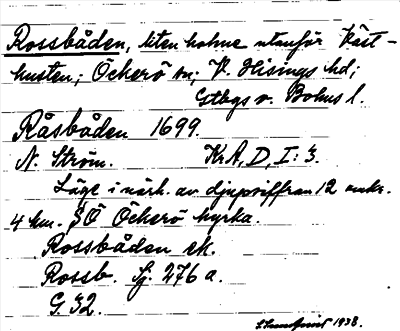 Rossbåden, liten holme utanför Väst-
kusten; Öckerö sn; V. Hisings hd;
Gtbgs o. Bohus l.
Råsbåden 1699.
N. Ström. KrA, D, I: 3.
Läge i närh. av djupsiffran 12 omkr.
4 km. SÖ Öckerö kyrka.
Rossbåden ek.
Rossb. Sj. 276 a.
G. 32.
1938.